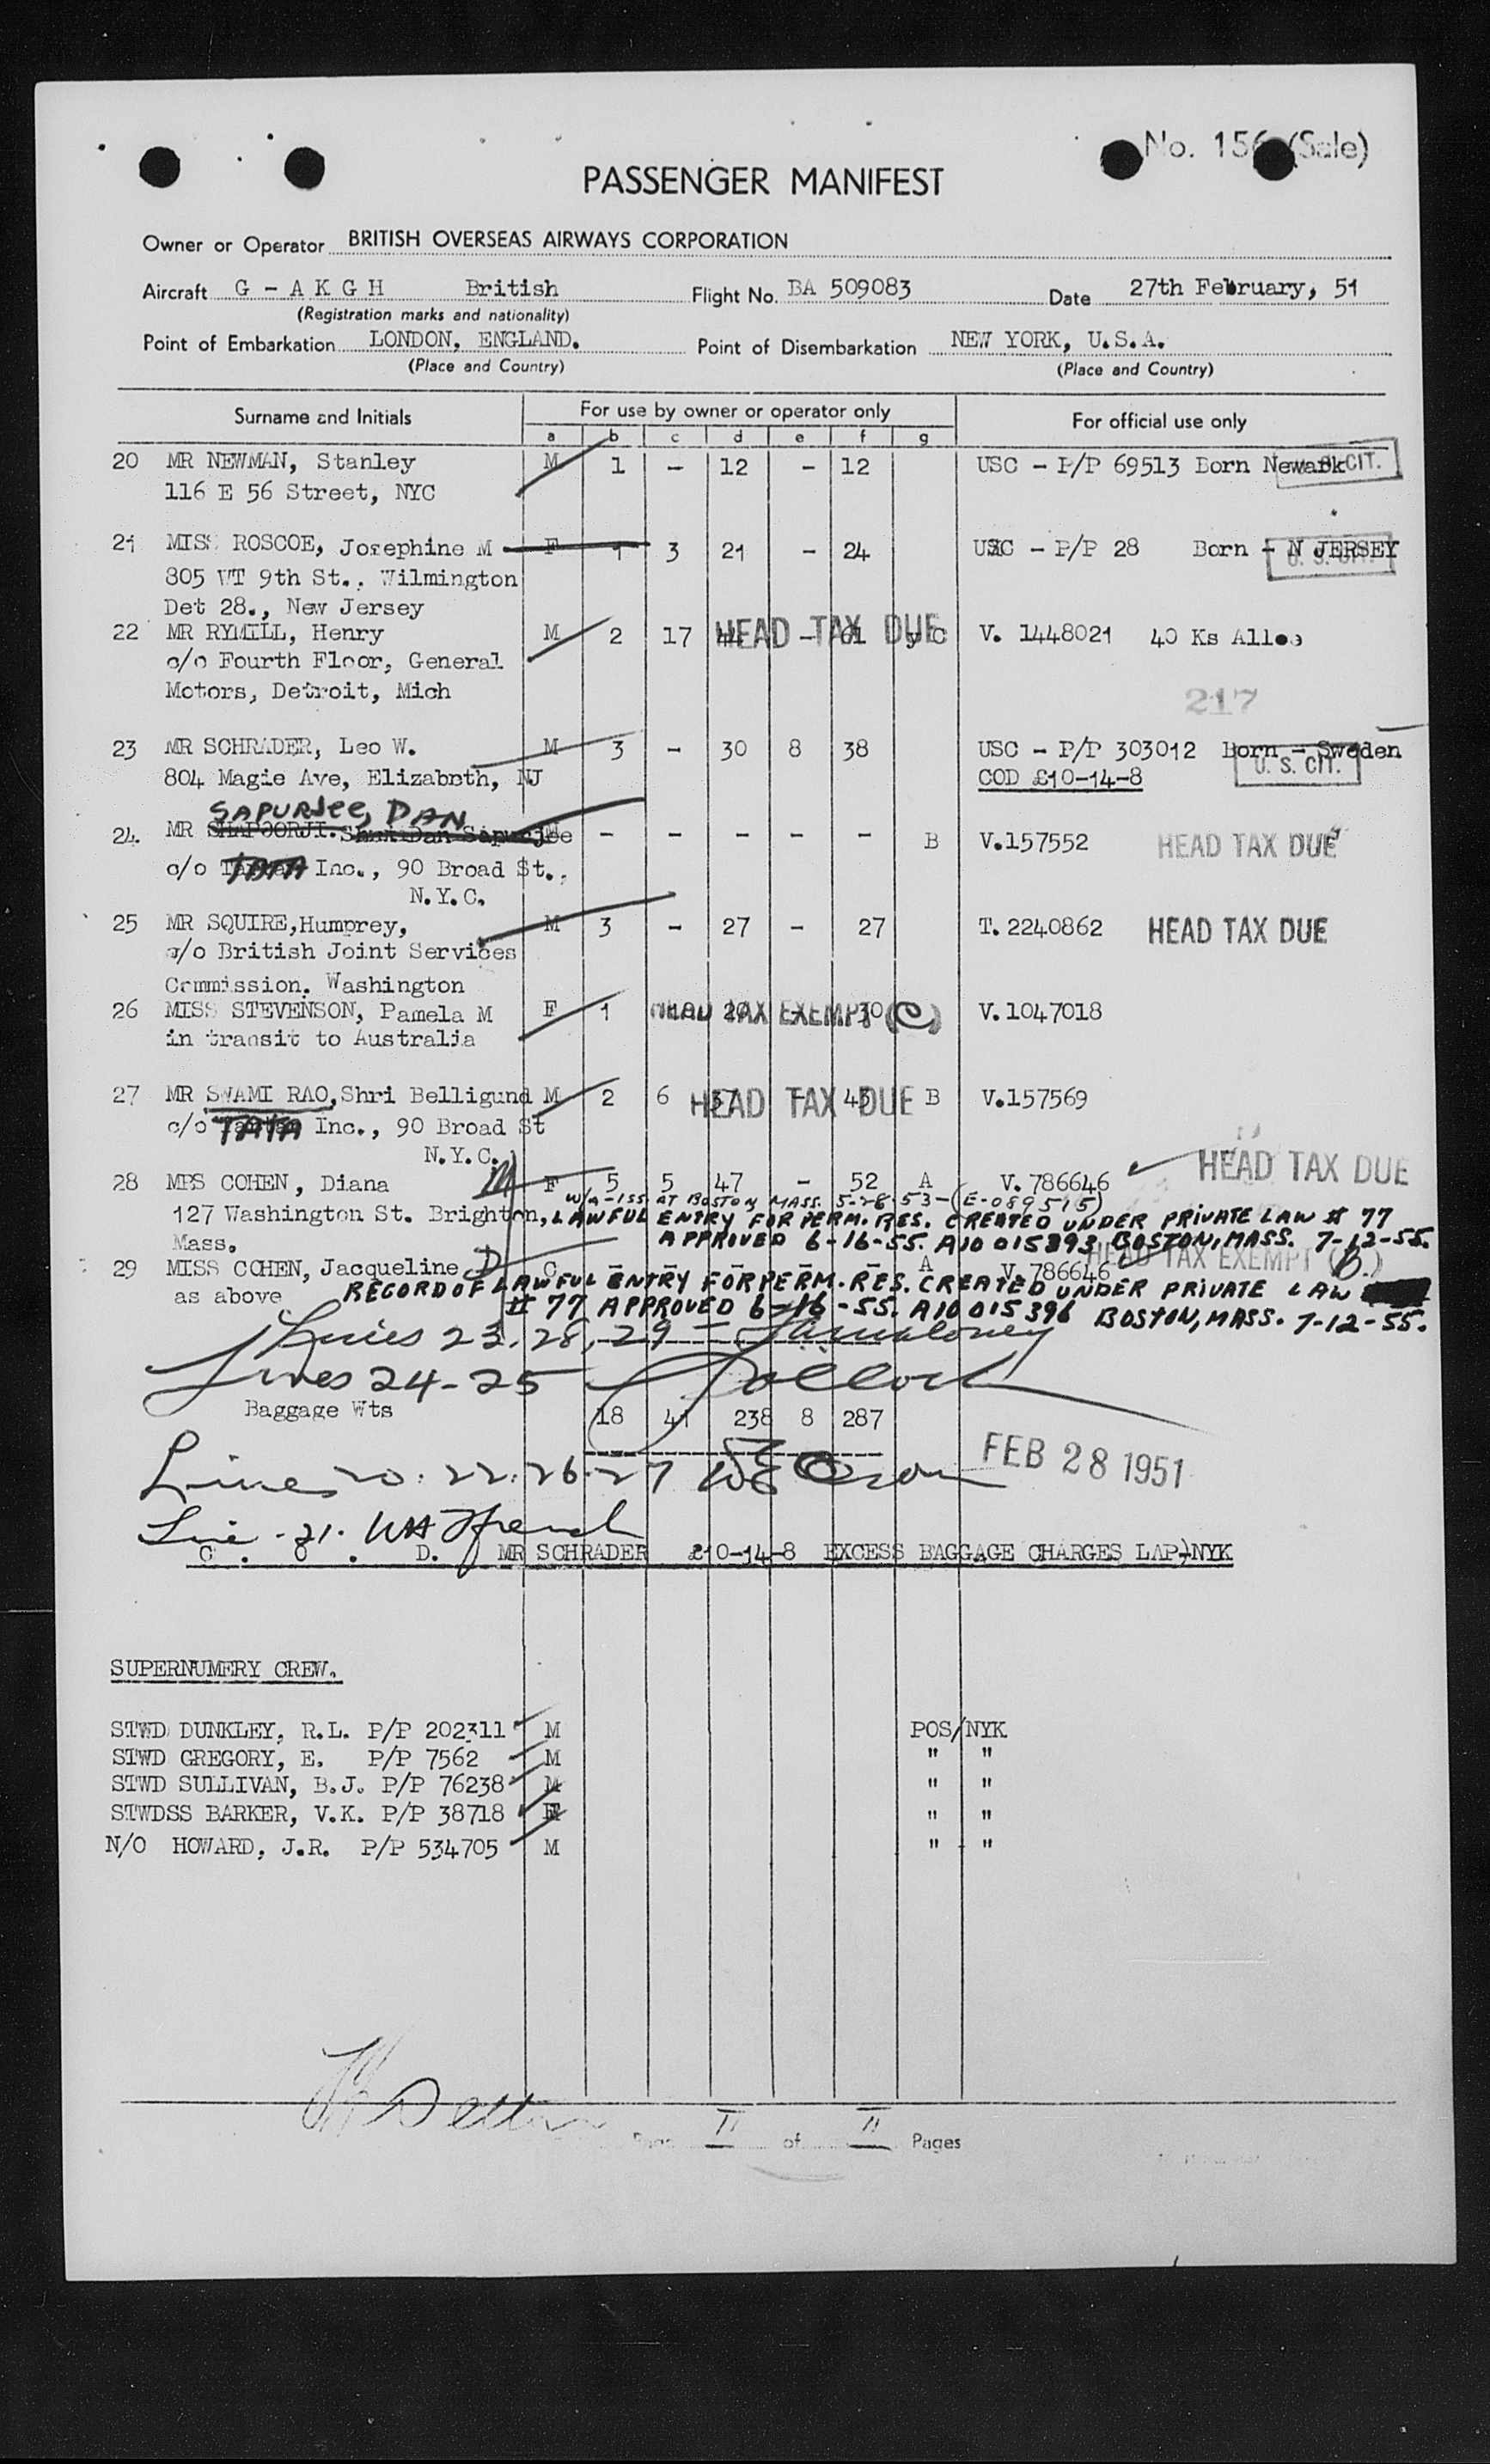 No. 156 (Sale)
PASSENGER MANIFEST
Owner or Operator BRITISH OVERSEAS AIRWAYS CORPORATION
Aircraft G - A K G H British Flight No. BA 509083 Date 27th February, 51
(Registration marks and nationality)
Point of Embarkation LONDON, ENGLAND. Point of Disembarkation NEW YORK, U.S.A.
(Place and Country) (Place and Country)
Surname and Initials For use by owner or operator only For official use only
a b c d e f g
20 MR NEWMAN, Stanley M 1 - 12 - 12 USC - P/P 69513 Born Newark U.S. CIT.
116 E 56 Street, NYC
21 MISS ROSCOE, Josephine M F 1 3 21 - 24 USC - P/P 28 Born - N JERSEY
U. S. CIT.
805 WT 9th St., Wilmington
Det 28., New Jersey
22 MR RYMILL, Henry M 2 17 HEAD TAX DUE - 61 C V. 1448021 40 Ks Alloc
c/o Fourth Floor, General
Motors, Detroit, Mich
217
23 MR SCHRADER, Leo W. M 3 - 30 8 38 USC - P/P 303012 Born - Sweden
804 Magie Ave, Elizabnth, NJ COD £10-14-8 U. S. CIT.
SAPURJEE, DAN
24. MR SHAPOORJI. Dan Sapurjee M - - - - - B V.157552 HEAD TAX DUE
c/o TATA Inc., 90 Broad St.,
N.Y.C.
25 MR SQUIRE,Humprey, M 3 - 27 - 27 T. 2240862 HEAD TAX DUE
c/o British Joint Services
Commission. Washington
26 MISS STEVENSON, Pamela M F 1 HEAD TAX EXEMPT (C) 30 V. 1047018
in transit to Australia
27 MR SWAMI RAO,Shri Belligund M 2 6 37 HEAD TAX DUE - 43 B V.157569
c/o TATA Inc., 90 Broad St
N.Y.C.
28 MRS COHEN, Diana F 5 5 47 - 52 A V. 786646 HEAD TAX DUE
W/A-ISS AT BOSTON MASS. 5-28-53-(E-089515)
127 Washington St. Brighton, LAWFUL ENTRY FOR PERM. RES. CREATED UNDER PRIVATE LAW # 77
Mass. APPROVED 6-16-55. A10 015393 BOSTON, MASS. 7-12-55.
29 MISS COHEN, Jacqueline D C - - - - - A V. 786646 HEAD TAX EXEMPT (B.)
as above RECORD OF LAWFUL ENTRY FOR PERM. RES. CREATED UNDER PRIVATE LAW
# 77 APPROVED 6-16-55. A10 015 396 BOSTON, MASS. 7-12-55.
Lines 23, 28, 29 -
Lines 24-25
Baggage Wts 18 41 238 8 287
FEB 28 1951
Lines 20. 22. 26. 27
Line - 21.
C . O . D. MR SCHRADER £10-14-8 EXCESS BAGGAGE CHARGES LAP-NYK
SUPERNUMERY CREW.
STWD DUNKLEY, R.L. P/P 202311 M POS/NYK
STWD GREGORY, E. P/P 7562 M " "
STWD SULLIVAN, B.J. P/P 76238 M " "
STWDSS BARKER, V.K. P/P 38718 F " "
N/O HOWARD, J.R. P/P 534705 M " "
Page II of II Pages